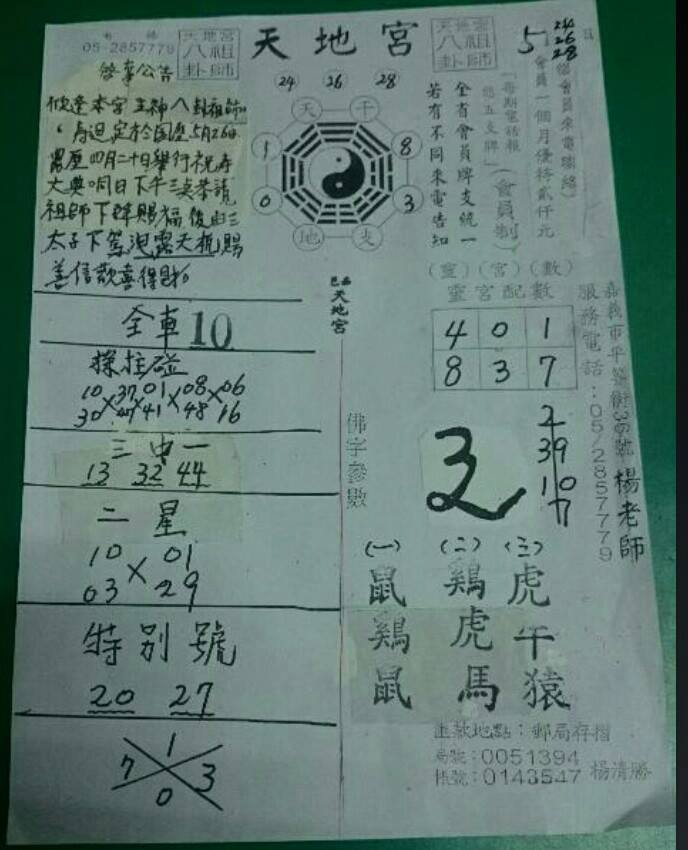 電話
05-2857779
天地宮
八祖
卦師
天地宮
天地宮
八祖
卦師
5
24
26
28
日
啓事公告
欣逢本宮主神八卦祖師
為迴定於国曆5月26日
農歷四月二十日舉行祝壽
大典同日下午三奌恭請
祖師下降賜福後由三
太子下駕泡露天梳賜
善信歡喜得財
24 26 28
天 干
1 8
0 3
地 支
會員來電聯絡
會員一個月優待貳仟元
「每期電話報
您五支牌」(會員制)
全省會員牌支統一
若有不同來電告知
(靈)(宮)(數)
靈宮配數
4 0 1
8 3 7
全車10
探柱碰
10 37 01 08 06
30 47 41 48 16
三中一
13 32 44
二星
10 × 01
03 29
特別號
20 27
1
7 3
0
天地宮
佛字參數
2
39
10
7
(一) (二) (三)
鼠 鷄 虎
鷄 虎 牛
鼠 馬 猿
匯款地點：郵局存摺
局號：0051394
帳號：0143547 楊清勝
服務電話：05/2857779
嘉義市平等街36號楊老師